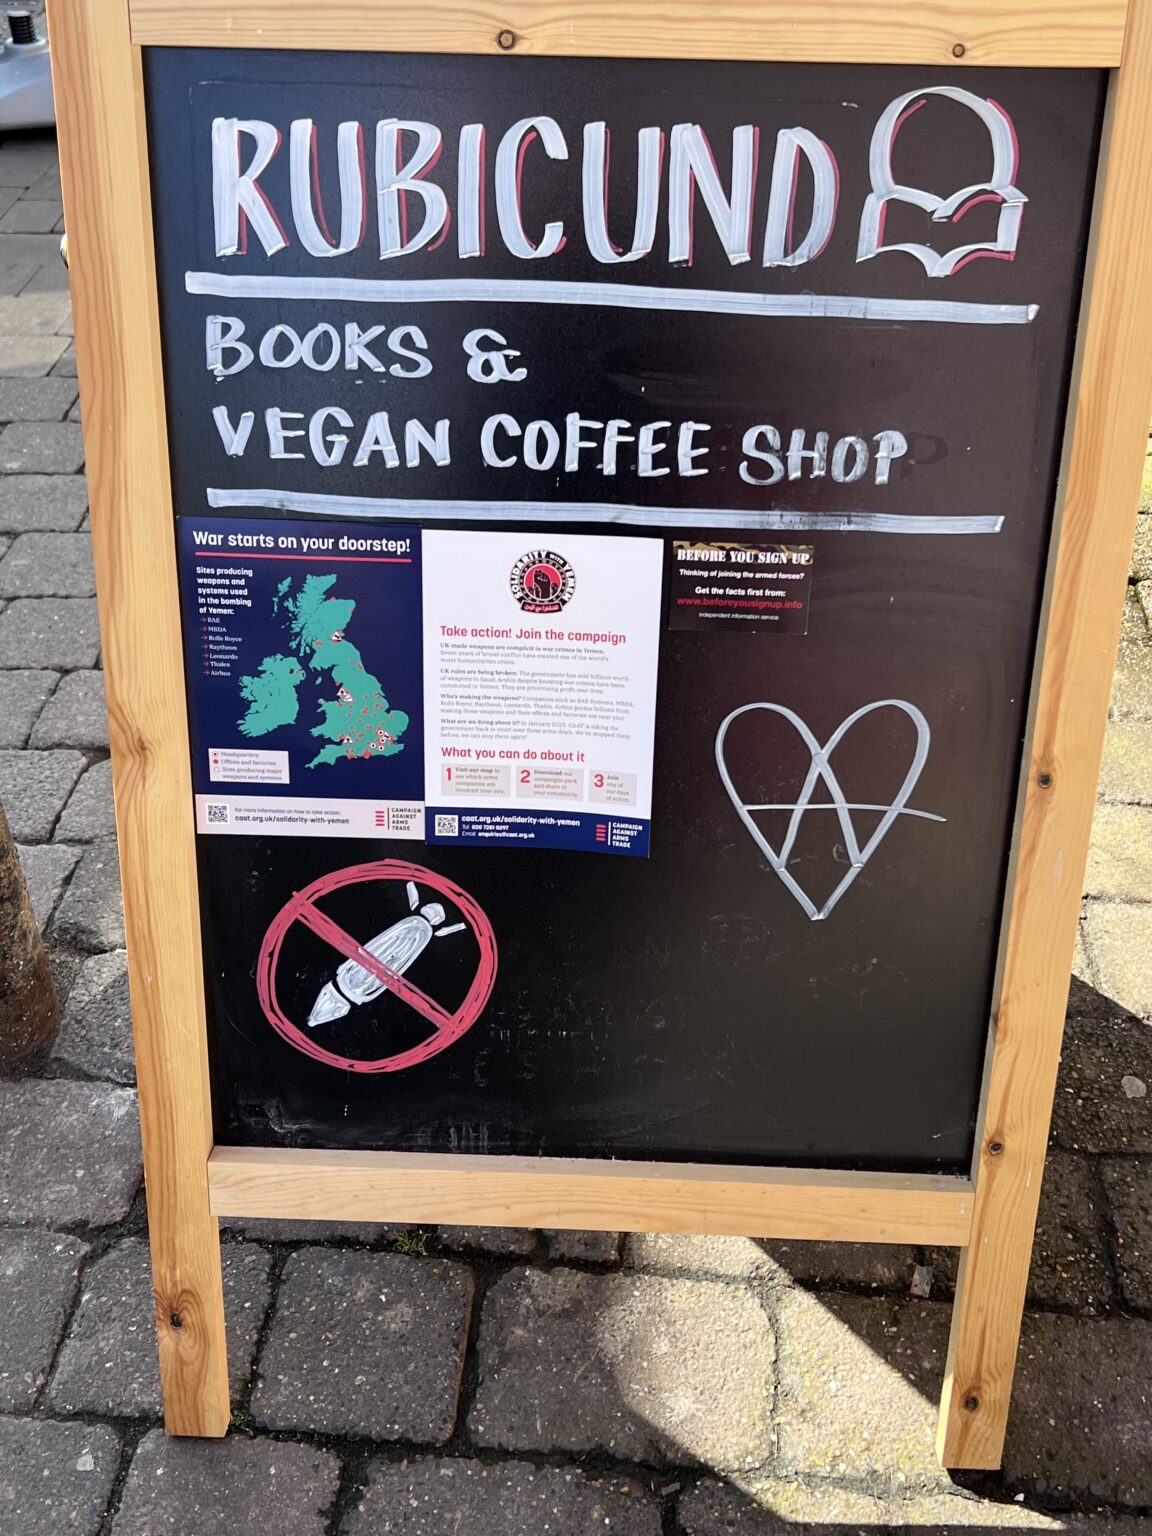 RUBICUND
BOOKS &
VEGAN COFFEE SHOP
War starts on your doorstep!
Sites producing
weapons and
systems used
in the bombing
of Yemen:
BAE
MBDA
Rolls Royce
Raytheon
Leonardo
Thales
Airbus
Headquarters
Offices and factories
Sites producing major
weapons and systems
For more information on how to take action:
caat.org.uk/solidarity-with-yemen
CAMPAIGN
AGAINST
ARMS
TRADE
SOLIDARITY WITH YEMEN
Take action! Join the campaign
UK-made weapons are complicit in war crimes in Yemen.
Seven years of brutal conflict have created one of the world's
worst humanitarian crises.
UK rules are being broken: The government has sold billions worth
of weapons to Saudi Arabia despite knowing war crimes have been
committed in Yemen. They are prioritising profit over lives.
Who's making the weapons? Companies such as BAE Systems, MBDA,
Rolls Royce, Raytheon, Leonardo, Thales, Airbus pocket billions from
making these weapons and their offices and factories are near you!
What are we doing about it? In January 2023, CAAT is taking the
government back to court over these arms deals. We've stopped them
before, we can stop them again!
What you can do about it
1 Visit our map to
see which arms
companies are
involved near you.
2 Download our
campaigns pack
and share in
your community.
3 Join
one of
our days
of action.
caat.org.uk/solidarity-with-yemen
Tel 020 7281 0297
Email enquiries@caat.org.uk
CAMPAIGN
AGAINST
ARMS
TRADE
BEFORE YOU SIGN UP
Thinking of joining the armed forces?
Get the facts first from:
www.beforeyousignup.info
independent information service